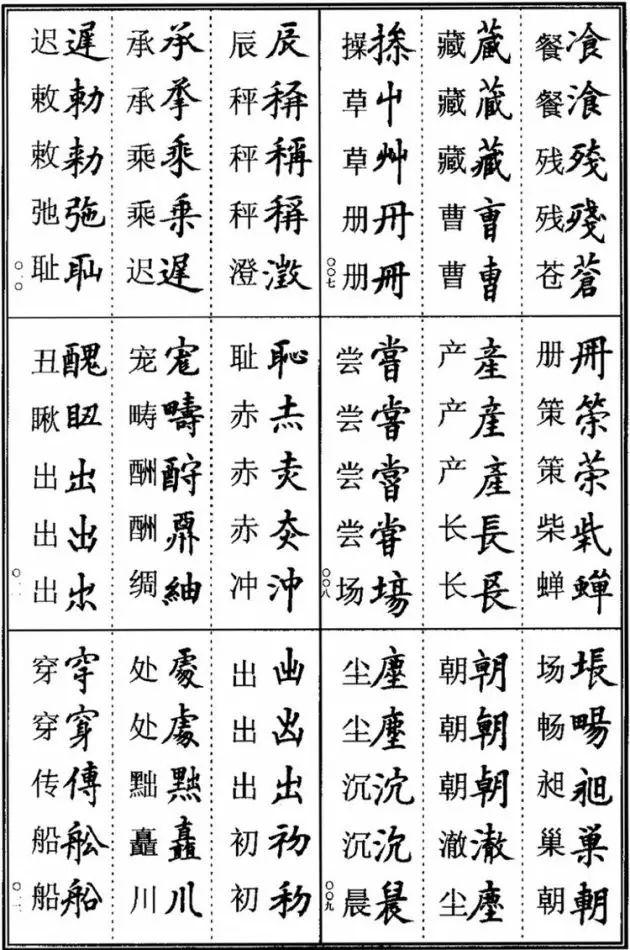 餐飡
餐湌
残殘
残殘
苍蒼
藏蔵
藏蔵
藏藏
曹曺
曹曹
操
草屮
草艸
册冊
册冊
〇〇七
册冊
策筞
策
柴
蝉蟬
产產
产産
产產
长長
长镸
尝嘗
尝嘗
尝嘗
尝甞
场塲
〇〇八
场
畅暘
昶昶
巢巣
朝朝
朝朝
朝朝
朝朝
澈澈
尘塵
尘塵
尘塵
沉沉
沉沉
晨晨
〇〇九
辰辰
秤稱
秤稱
秤稱
澄澂
承承
承
乘乗
乘乗
迟遲
迟遲
敕勅
敕勑
弛
耻耻
〇一〇
耻恥
赤
赤
赤
冲沖
宠
畴疇
酬酧
酬
绸紬
丑醜
瞅
出出
出出
出
〇一一
出
出
出出
初初
初
处處
处處
黜黜
矗矗
川川
穿穿
穿穿
传傳
船舩
船船
〇一二